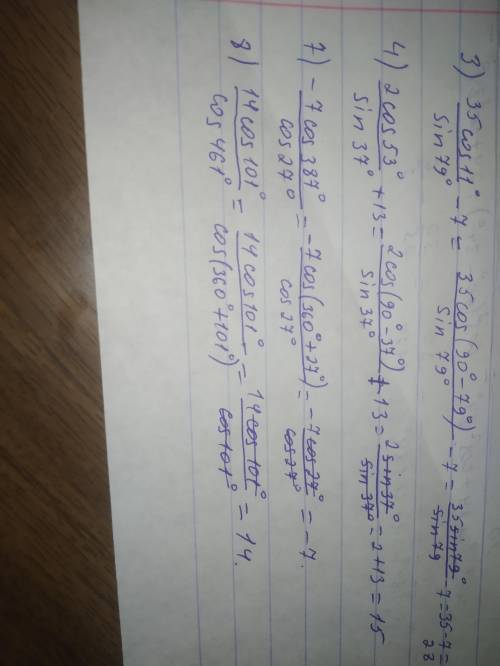 3) 35cos11°/sin79° - 7 = 35cos(90°-79°)/sin79° - 7 = 35sin79°/sin79 - 7 = 35 - 7 =
28
4) 2cos53°/sin37° + 13 = 2cos(90°-37°)/sin37° + 13 = 2sin37°/sin37° = 2 + 13 = 15
7) -7cos387°/cos27° = -7cos(360°+27°)/cos27° = -7cos27°/cos27° = -7.
8) 14cos101°/cos461° = 14cos101°/cos(360°+101°) = 14cos101°/cos101° = 14.